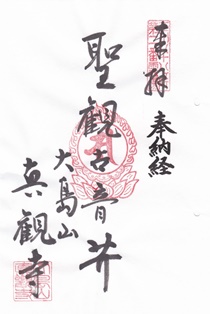 奉拝
奉納経
聖観世音菩薩
大島山
真観寺